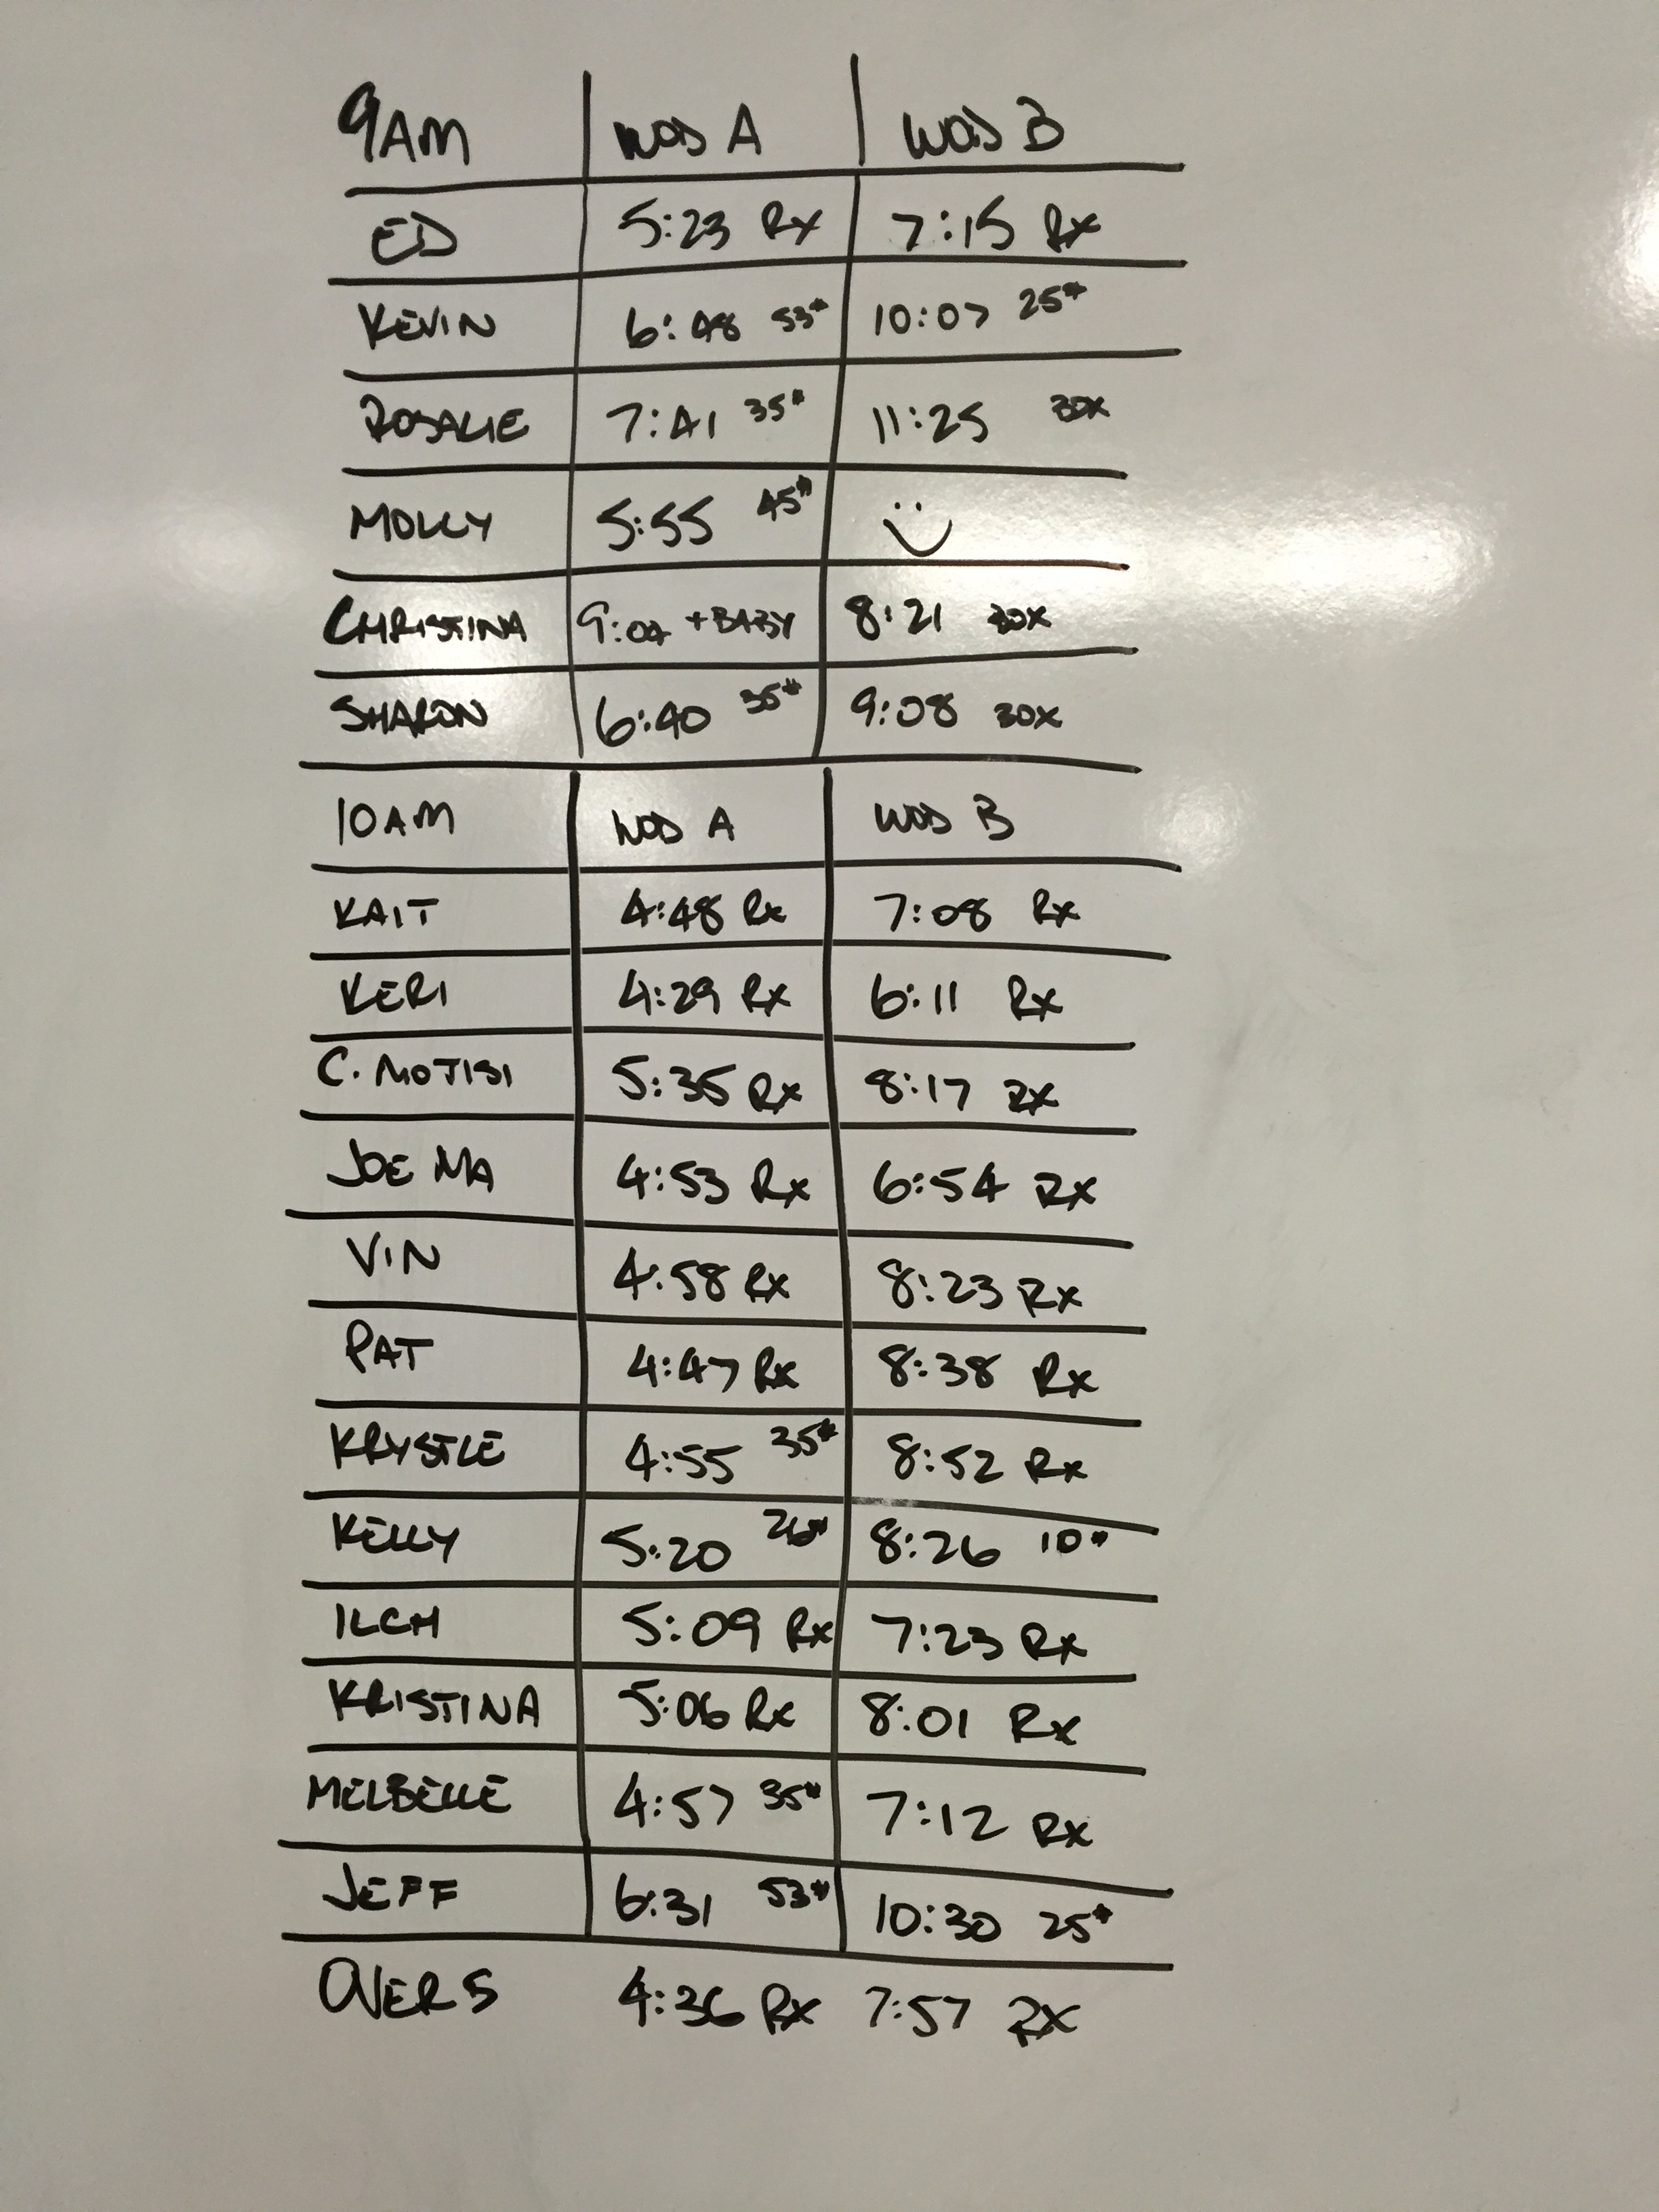 9AM WOD A WOD B
ED 5:23 Rx 7:15 Rx
KEVIN 6:48 53# 10:07 25#
ROSALIE 7:41 35# 11:25 30x
MOLLY 5:55 45#
CHRISTINA + BABY 8:21 30x
SHARON 6:40 35# 9:08 30x
10AM WOD A WOD B
KAIT 4:48 Rx 7:08 Rx
KERI 4:29 Rx 6:11 Rx
C. MOTISI 5:35 Rx 8:17 Rx
JOE MA 4:53 Rx 6:54 Rx
VIN 4:58 Rx 8:23 Rx
PAT 4:47 Rx 8:38 Rx
KRYSTLE 4:55 35# 8:52 Rx
KELLY 5:20 26# 8:26 10#
ILCH 5:09 Rx 7:23 Rx
KRISTINA 5:06 Rx 8:01 Rx
MELBELLE 4:57 35# 7:12 Rx
JEFF 6:31 53# 10:30 25#
OVERS 4:36 Rx 7:57 Rx